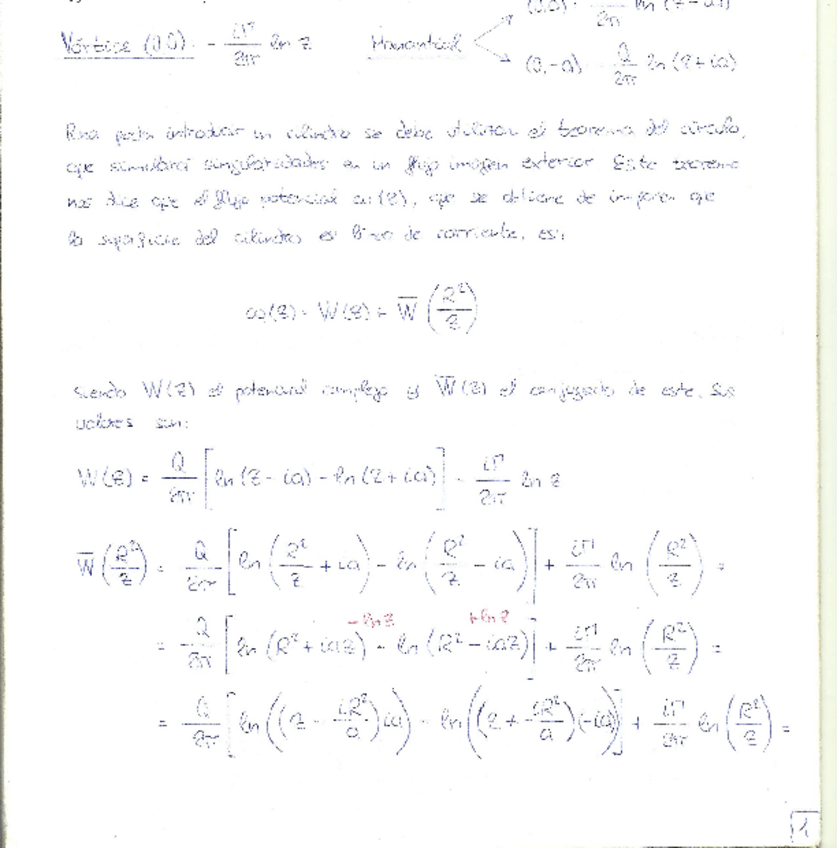 (0,a) · 2π ln (z-ai)
Vórtice (0,0) · - iΓ/2π ln z Manantial (0,-a) Q/2π ln (z+ia)
Para poder introducir un cilindro se debe utilizar el teorema del círculo,
que simulará singularidades en un flujo imagen exterior Este teorema
nos dice que el flujo potencial ω(z), que se obtiene de imponer que
la superficie del cilindro es línea de corriente, es:
ω(z) = W(z) + W̅ (R²/z)
Siendo W(z) el potencial complejo y W̅(z) el conjugado de este. Sus
valores son:
W(z) = Q/2π [ln (z - ia) - ln (z + ia)] - iΓ/2π ln z
W̅(R²/z) = Q/2π [ln (R²/z + ia) - ln (R²/z - ia)] + iΓ/2π ln (R²/z) =
- ln z + ln z
= Q/2π [ln (R² + iaz) - ln (R² - iaz)] + iΓ/2π ln (R²/z) =
= Q/2π [ln ((z - iR²/a) ia) - ln ((z + iR²/a)(-ia))] + iΓ/2π ln (R²/z) =
1